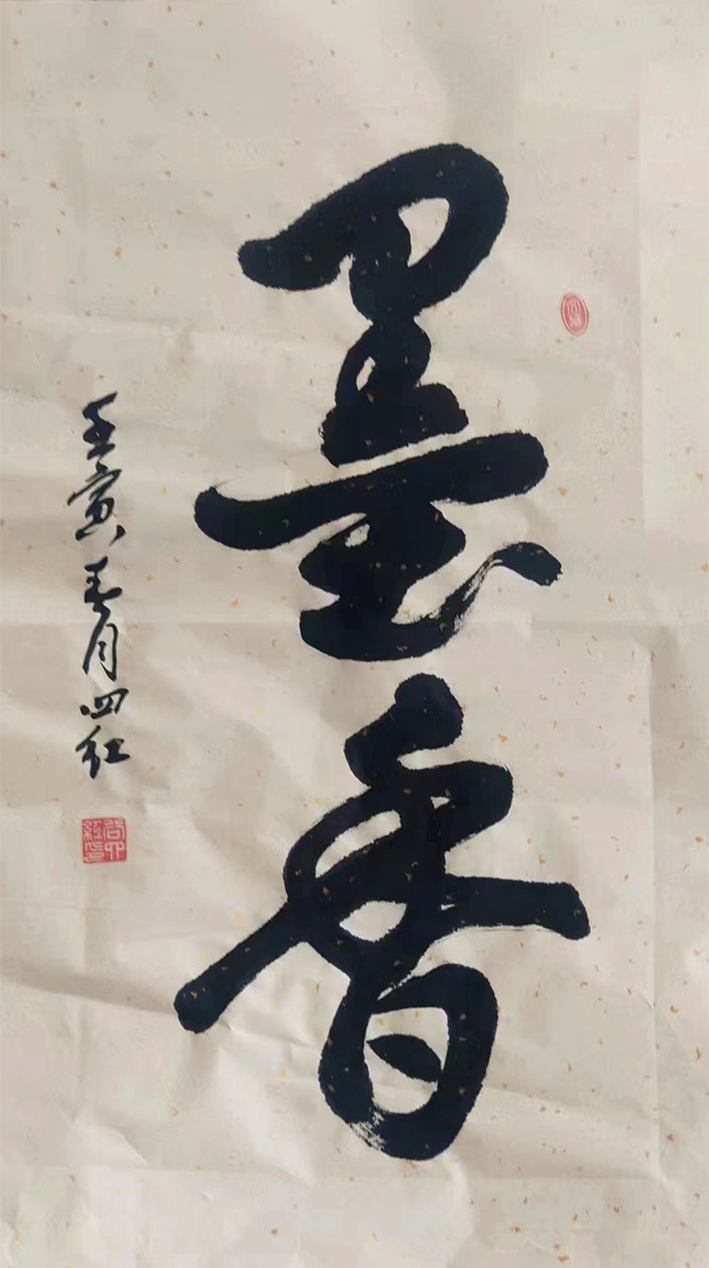 墨香
壬寅春月四红